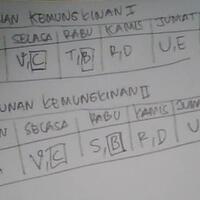 UNAN KEMUNGKINAN I
SELASA RABU KAMIS JUMAT
V,C T,B R,D U,E
UNAN KEMUNGKINAN II
SELASA RABU KAMIS JUM
V,C S,B R,D U